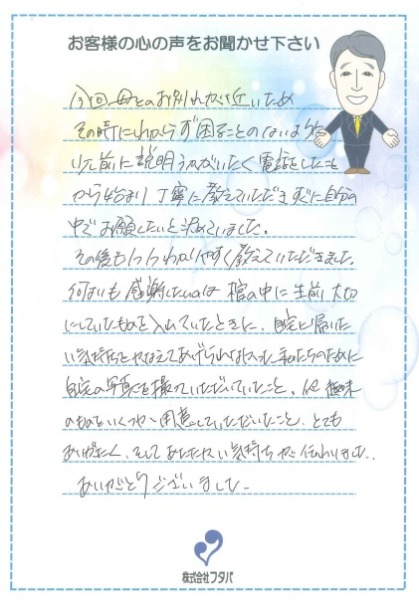 お客様の心の声をお聞かせ下さい
今回母とのお別れが近いため
その時にわからず困ることのないよう
以前に説明うかがいたく電話したこと
から始まり丁寧に教えていただきすぐに自分の
中でお願いしたいと決めていました。
その後もいろいろわかりやすく教えていただきました。
何よりも感謝したいのは棺の中に生前大切
にしていたものを入れていたときに、自宅に帰りた
い気持ちをかなえてあげられなかった私たちのために
自宅の写真を撮っていただいていたこと、又趣味
のものをいくつか用意していただいたこと、とても
ありがたく、そしてあたたかい気持ちが伝わりました。
ありがとうございました。
株式会社フタバ